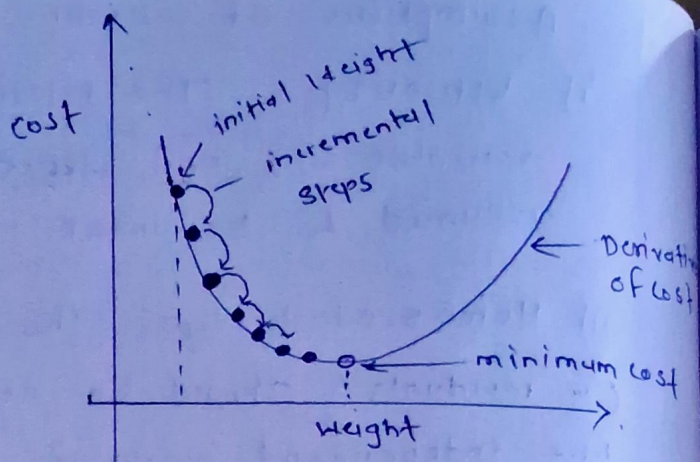 cost
initial Weight
incremental
steps
Derivati
of cost
minimum cost
Weight